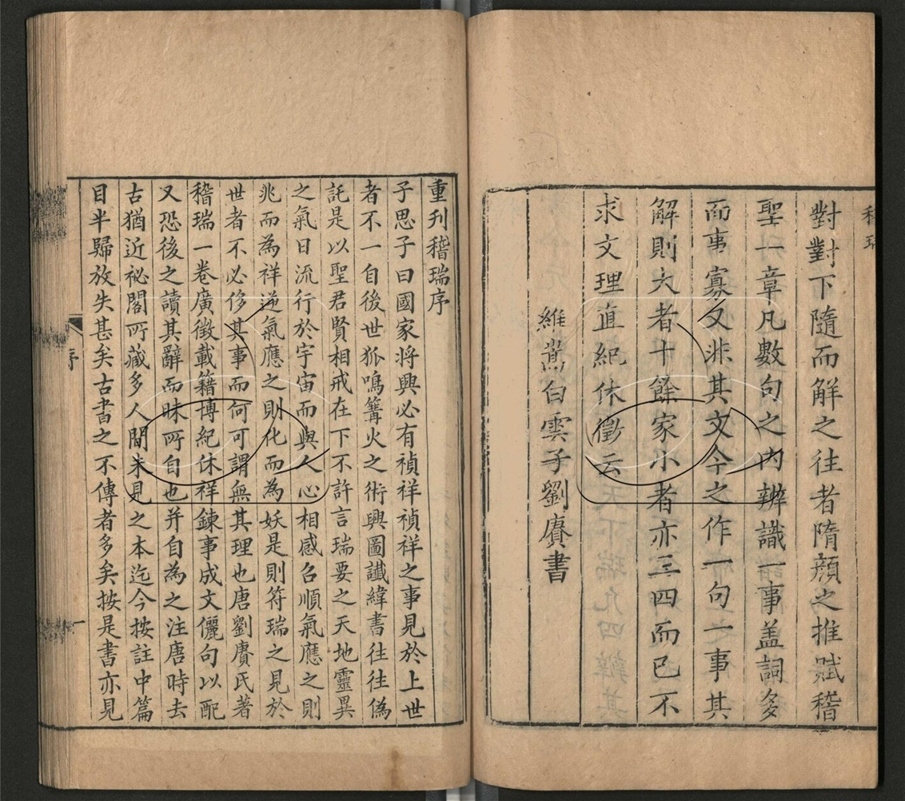 對對下隨而解之往者隋顏之推賦稽
聖一章凡數句之內辨識一事蓋詞多
而事寡又非其文今之作一句一事其
解則大者十餘家小者亦三四而已不
求文理直紀休徵云
維嵩白雲子劉賡書
重刊稽瑞序
子思子曰國家將興必有禎祥禎祥之事見於上世
者不一自後世狐鳴篝火之術興圖讖緯書往往偽
託是以聖君賢相戒在下不許言瑞要之天地靈異
之氣日流行於宇宙而與人心相感召順氣應之則
兆而為祥逆氣應之則化而為妖是則符瑞之見於
世者不必侈其事而何可謂無其理也唐劉賡氏著
稽瑞一卷廣徵載籍博紀休祥鍊事成文儷句以配
又恐後之讀其辭而昧所自也并自為之注唐時去
古猶近祕閣所藏多人間未見之本迄今按註中篇
目半歸放失甚矣古書之不傳者多矣按是書亦見
序
一